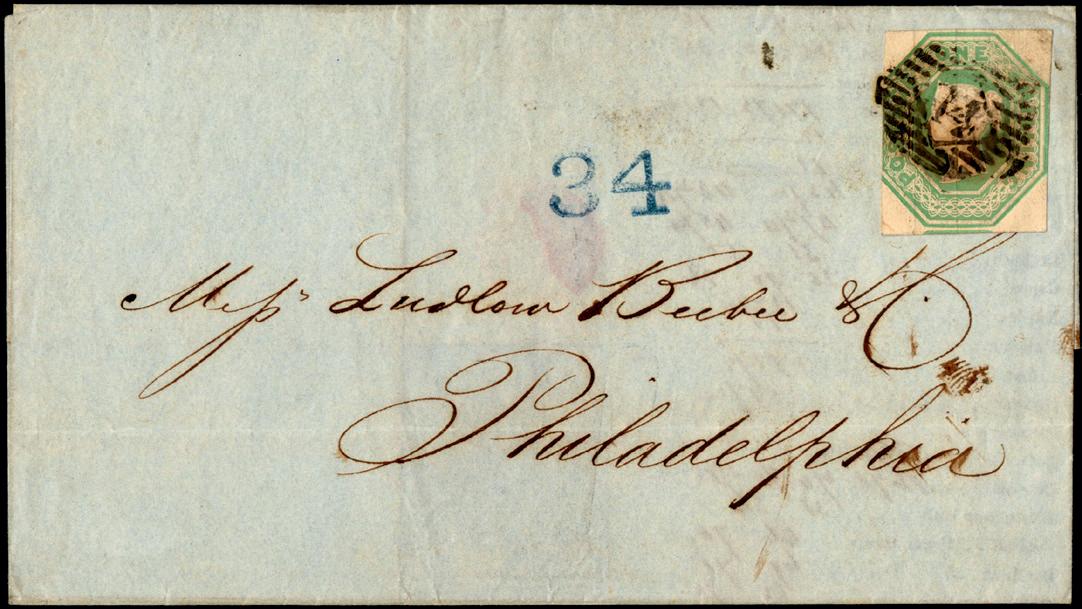 ONE
34
Mess^rs Ludlow Beebee & Co.
Philadelphia